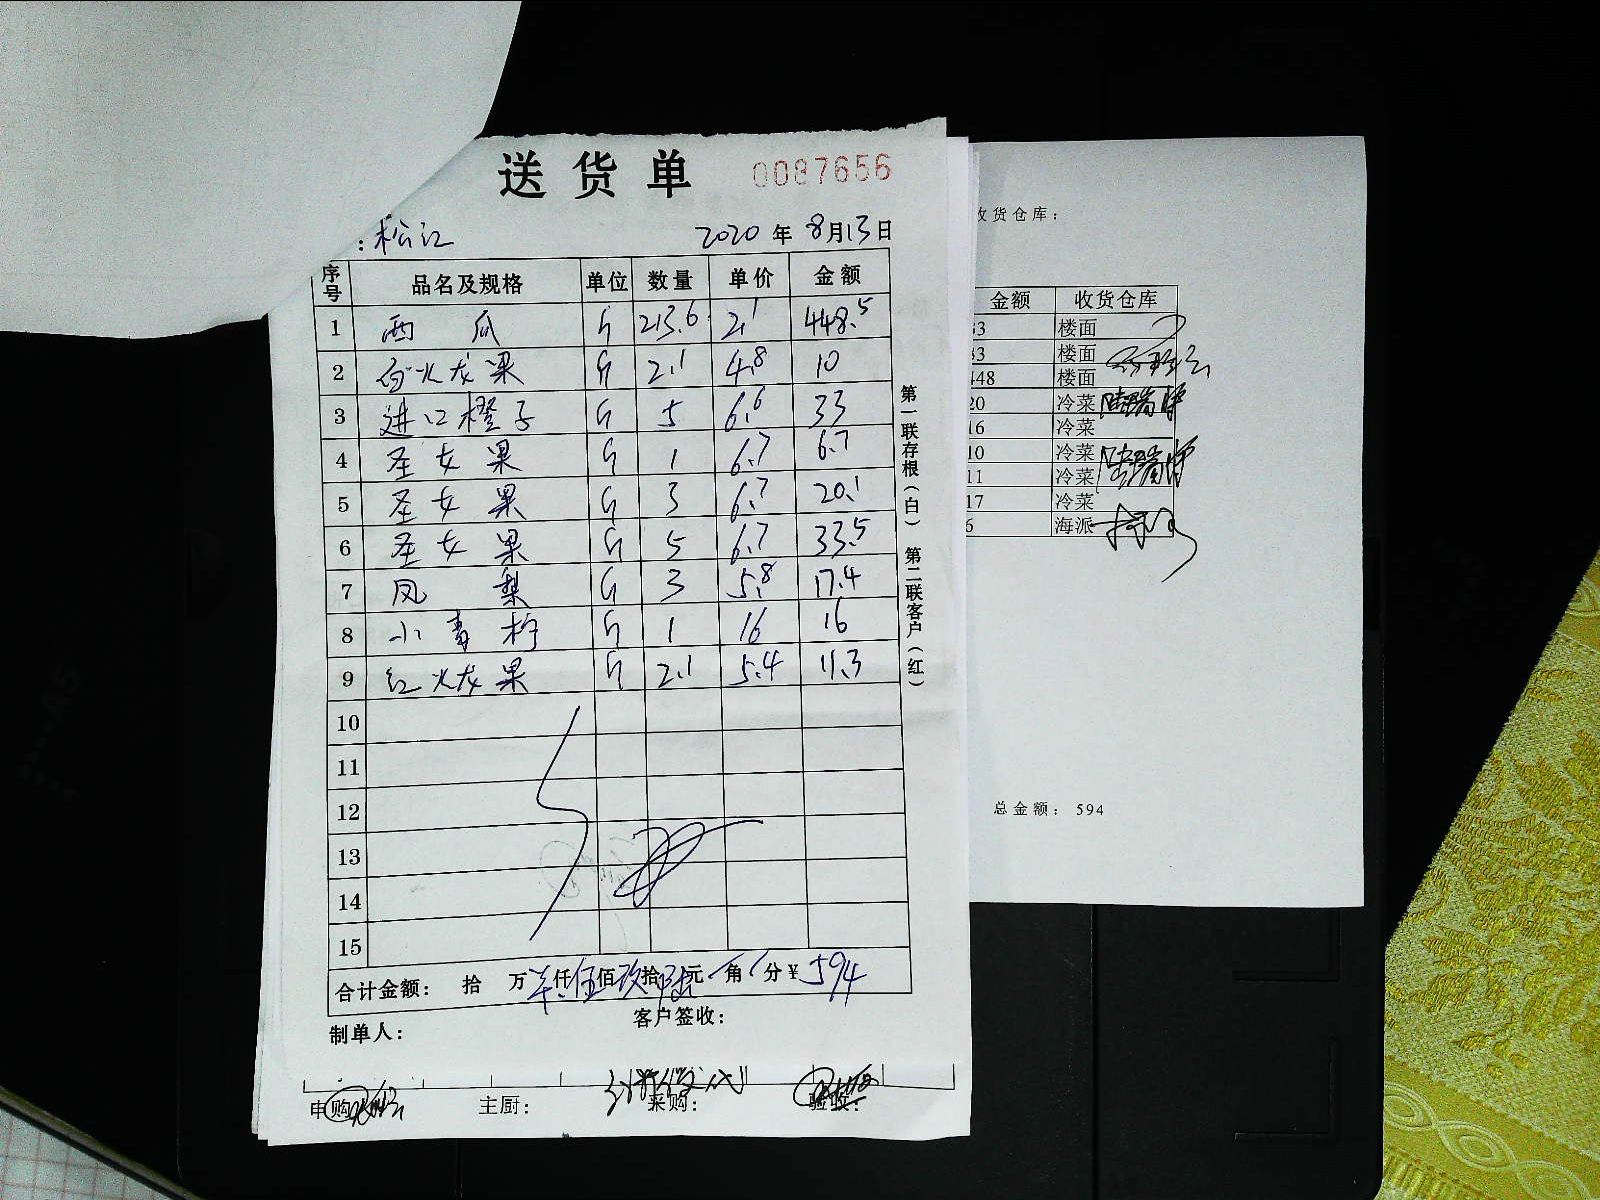 送货单 0087656
：松江 2020年8月13日
序号 品名及规格 单位 数量 单价 金额
1 西瓜 斤 213.6 2.1 448.5
2 白火龙果 斤 2.1 4.8 10
3 进口橙子 斤 5 6.6 33
4 圣女果 斤 1 6.7 6.7
5 圣女果 斤 3 6.7 20.1
6 圣女果 斤 5 6.7 33.5
7 凤梨 斤 3 5.8 17.4
8 小青柠 斤 1 16 16
9 红火龙果 斤 2.1 5.4 11.3
10
11
12
13
14
15
合计金额： 拾 万 仟伍佰玖拾 元 角 分￥594
制单人： 客户签收：
申购 主厨： 采购： 验收：
第一联存根（白） 第二联客户（红）
收货仓库：
金额 收货仓库
33 楼面
33 楼面
448 楼面
20 冷菜
16 冷菜
10 冷菜
11 冷菜
17 冷菜
6 海派
总金额：594